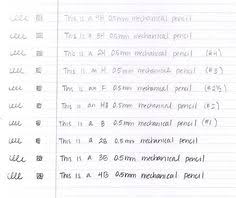 elle This is a 4H 0.5mm mechanical pencil
elle This is a 3H 0.5mm mechanical pencil
elle This is a 2H 0.5mm mechanical pencil (#4)
elle This is an H 0.5mm mechanical pencil (#3)
elle This is an F 0.5mm mechanical pencil (#2½)
elle This is an HB 0.5mm mechanical pencil (#2)
elle This is a B 0.5mm mechanical pencil (#1)
elle This is a 2B 0.5mm mechanical pencil
elle This is a 3B 0.5mm mechanical pencil
elle This is a 4B 0.5mm mechanical pencil